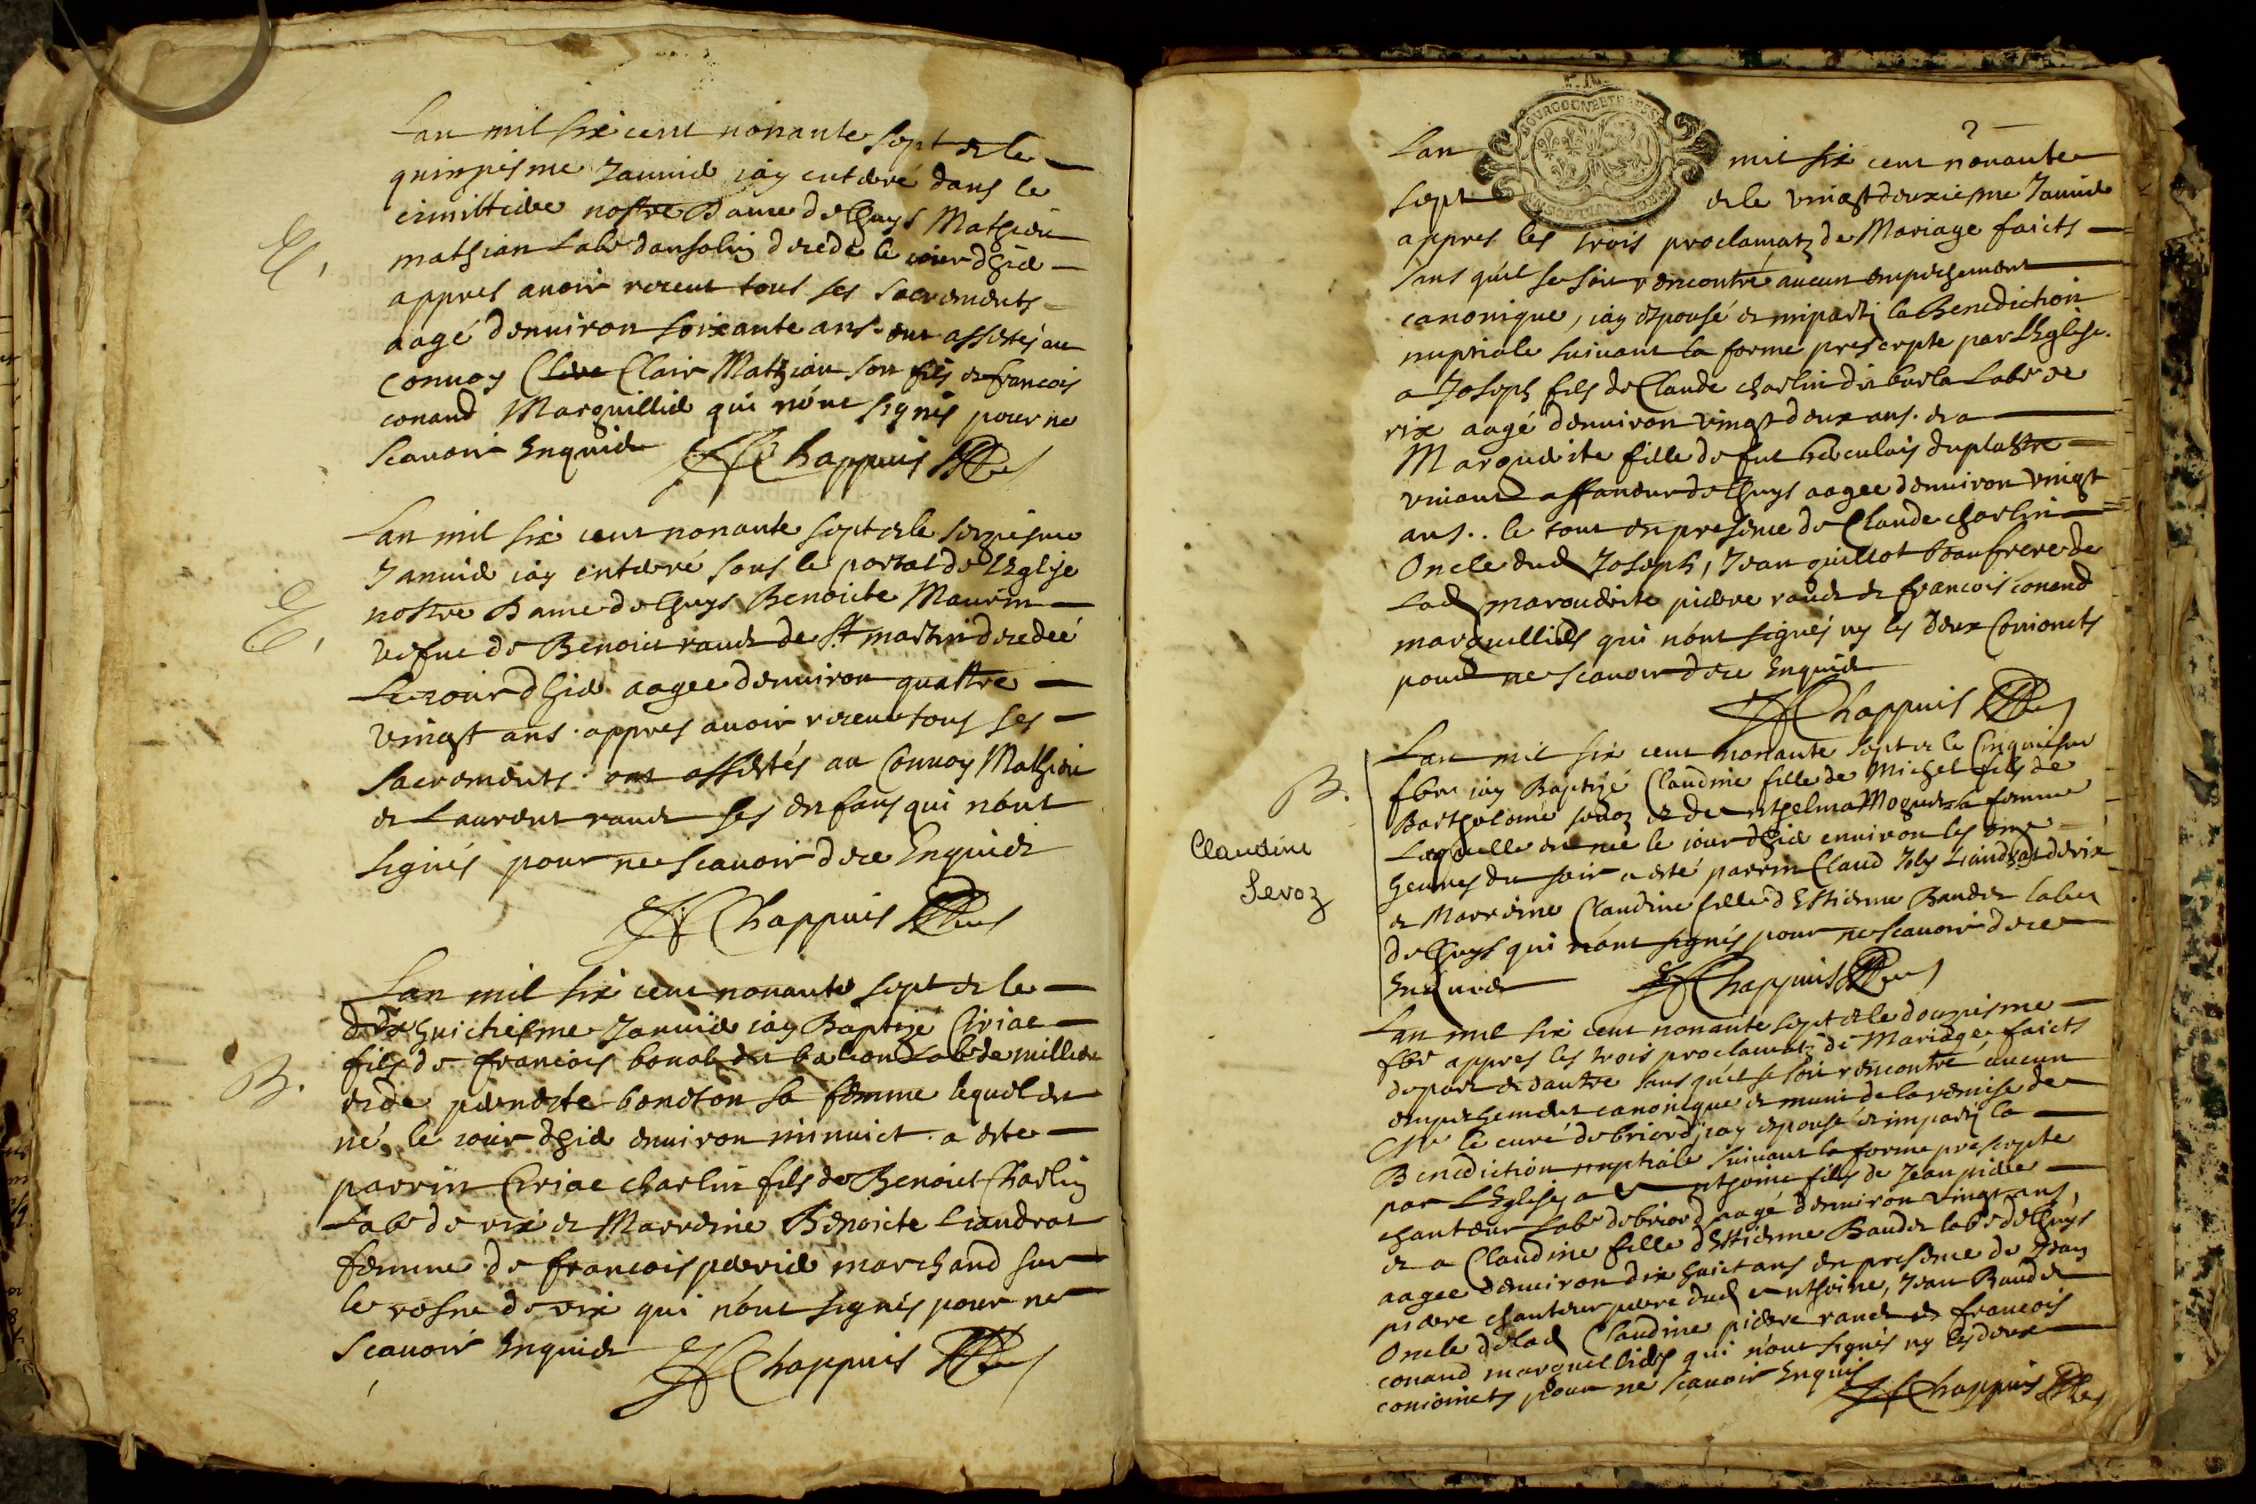 Lan mil six cent nonante sept et le
quinziesme Januier iay enterré dans le
cimittiere nostre Dame de Lhuys Mathieu
mathian labr dansolin decedé le iour dhier
appres auoir receu tous ses sacrements
aagé denuiron soixante ans. ont assistés au
Conuoy Clere Clair Mathian son fils et francois
conand Marguillier qui nont signés pour ne
scauoir Enquis Chappuis
E.
Lan mil six cent nonante sept et le seziesme
Januier iay enterré sous le portal de LEglise
nostre Dame de Lhuys Benoiste Maurin
vefue de Benoict raudet de St martin decedeé
Le iour dhier aagee denuiron quattre
vingt ans. appres auoir receu tous ses
sacrements. ont assistés au Conuoy Mathieu
et Laurent raudet ses enfans qui nont
signés pour ne scauoir de ce Enquis
Chappuis
E.
Lan mil six cent nonante sept et le
dixhuictiesme Januier iay Baptizé Ciriac
fils de francois bonat dit labr de millieu
et de pernette boneton sa femme lequel est
né le iour dhier enuiron minuict. a esté
parrin Ciriac charlin fils de Benoict Charlin
Labr de rix et Marreine Benoicte Liandrat
femme de francois perrier marchand sur
le rosne de rix qui nont signés pour ne
scauoir Enquis Chappuis
B.
2
BOURGOGNE ET BRESSE
Lan mil six cent nonante
sept et le vingt deuxiesme Januier
appres les trois proclamatz de Mariage faicts
sans quil se soit rencontré aucun empechement
canonique, iay espousé et imparti la Benediction
nuptiale suiuant la forme prescripte par LEglise.
a Joseph fils de Claude charlin dit burla Labr de
rix aagé denuiron vingt deux ans. et a
Marguerite fille de fut herculais duplastre
viuant affaneur de Lhuys aagee denuiron vingt
ans.. le tout en presence de Claude charlin
Oncle dud Joseph, Jean guillot beaufrere de
Lad marguerite pierre raudet et francois conand
marguilliers qui nont signés ny les deux Conioncts
pour ne scauoir de ce Enquis
Chappuis
Lan mil six cent nonante sept et le Cinquiesme
fbr iay Baptizé Claudine fille de Michel fils de
Bartholomé seuoz et de Anthelma Moguet sa femme
Laquelle est nee le iour dhier enuiron les onze
heures du soir a esté parrin Claud Joly Liandrat de rix
et Marreine Claudine fille dEstienne Baudet labr
de Lhuys qui nont signés pour ne scauoir de ce
Enquis Chappuis
B.
Claudine
Sevoz
Lan mil six cent nonante sept et le douziesme
fbr appres les trois proclamatz de Mariage faicts
de part et dautre sans quil se soit rencontré aucun
empechement canonique et muni de la remise de
Mre le curé de briord, iay espousé et imparti la
Benediction nuptiale suiuant la forme prescripte
par LEglise, a Anthoine fils de Jean pierre
chanteur Labr de briord aagé denuiron vingt ans,
et a Claudine fille dEstienne Baudet labr de Lhuys
aagee denuiron dix huict ans en presence de Jean
pierre chanteur pere dud Anthoine, Jean Baudet
Oncle de lad Claudine pierre raudet et francois
conand marguilliers qui nont signés ny les deux
conioincts pour ne scauoir Enquis
Chappuis